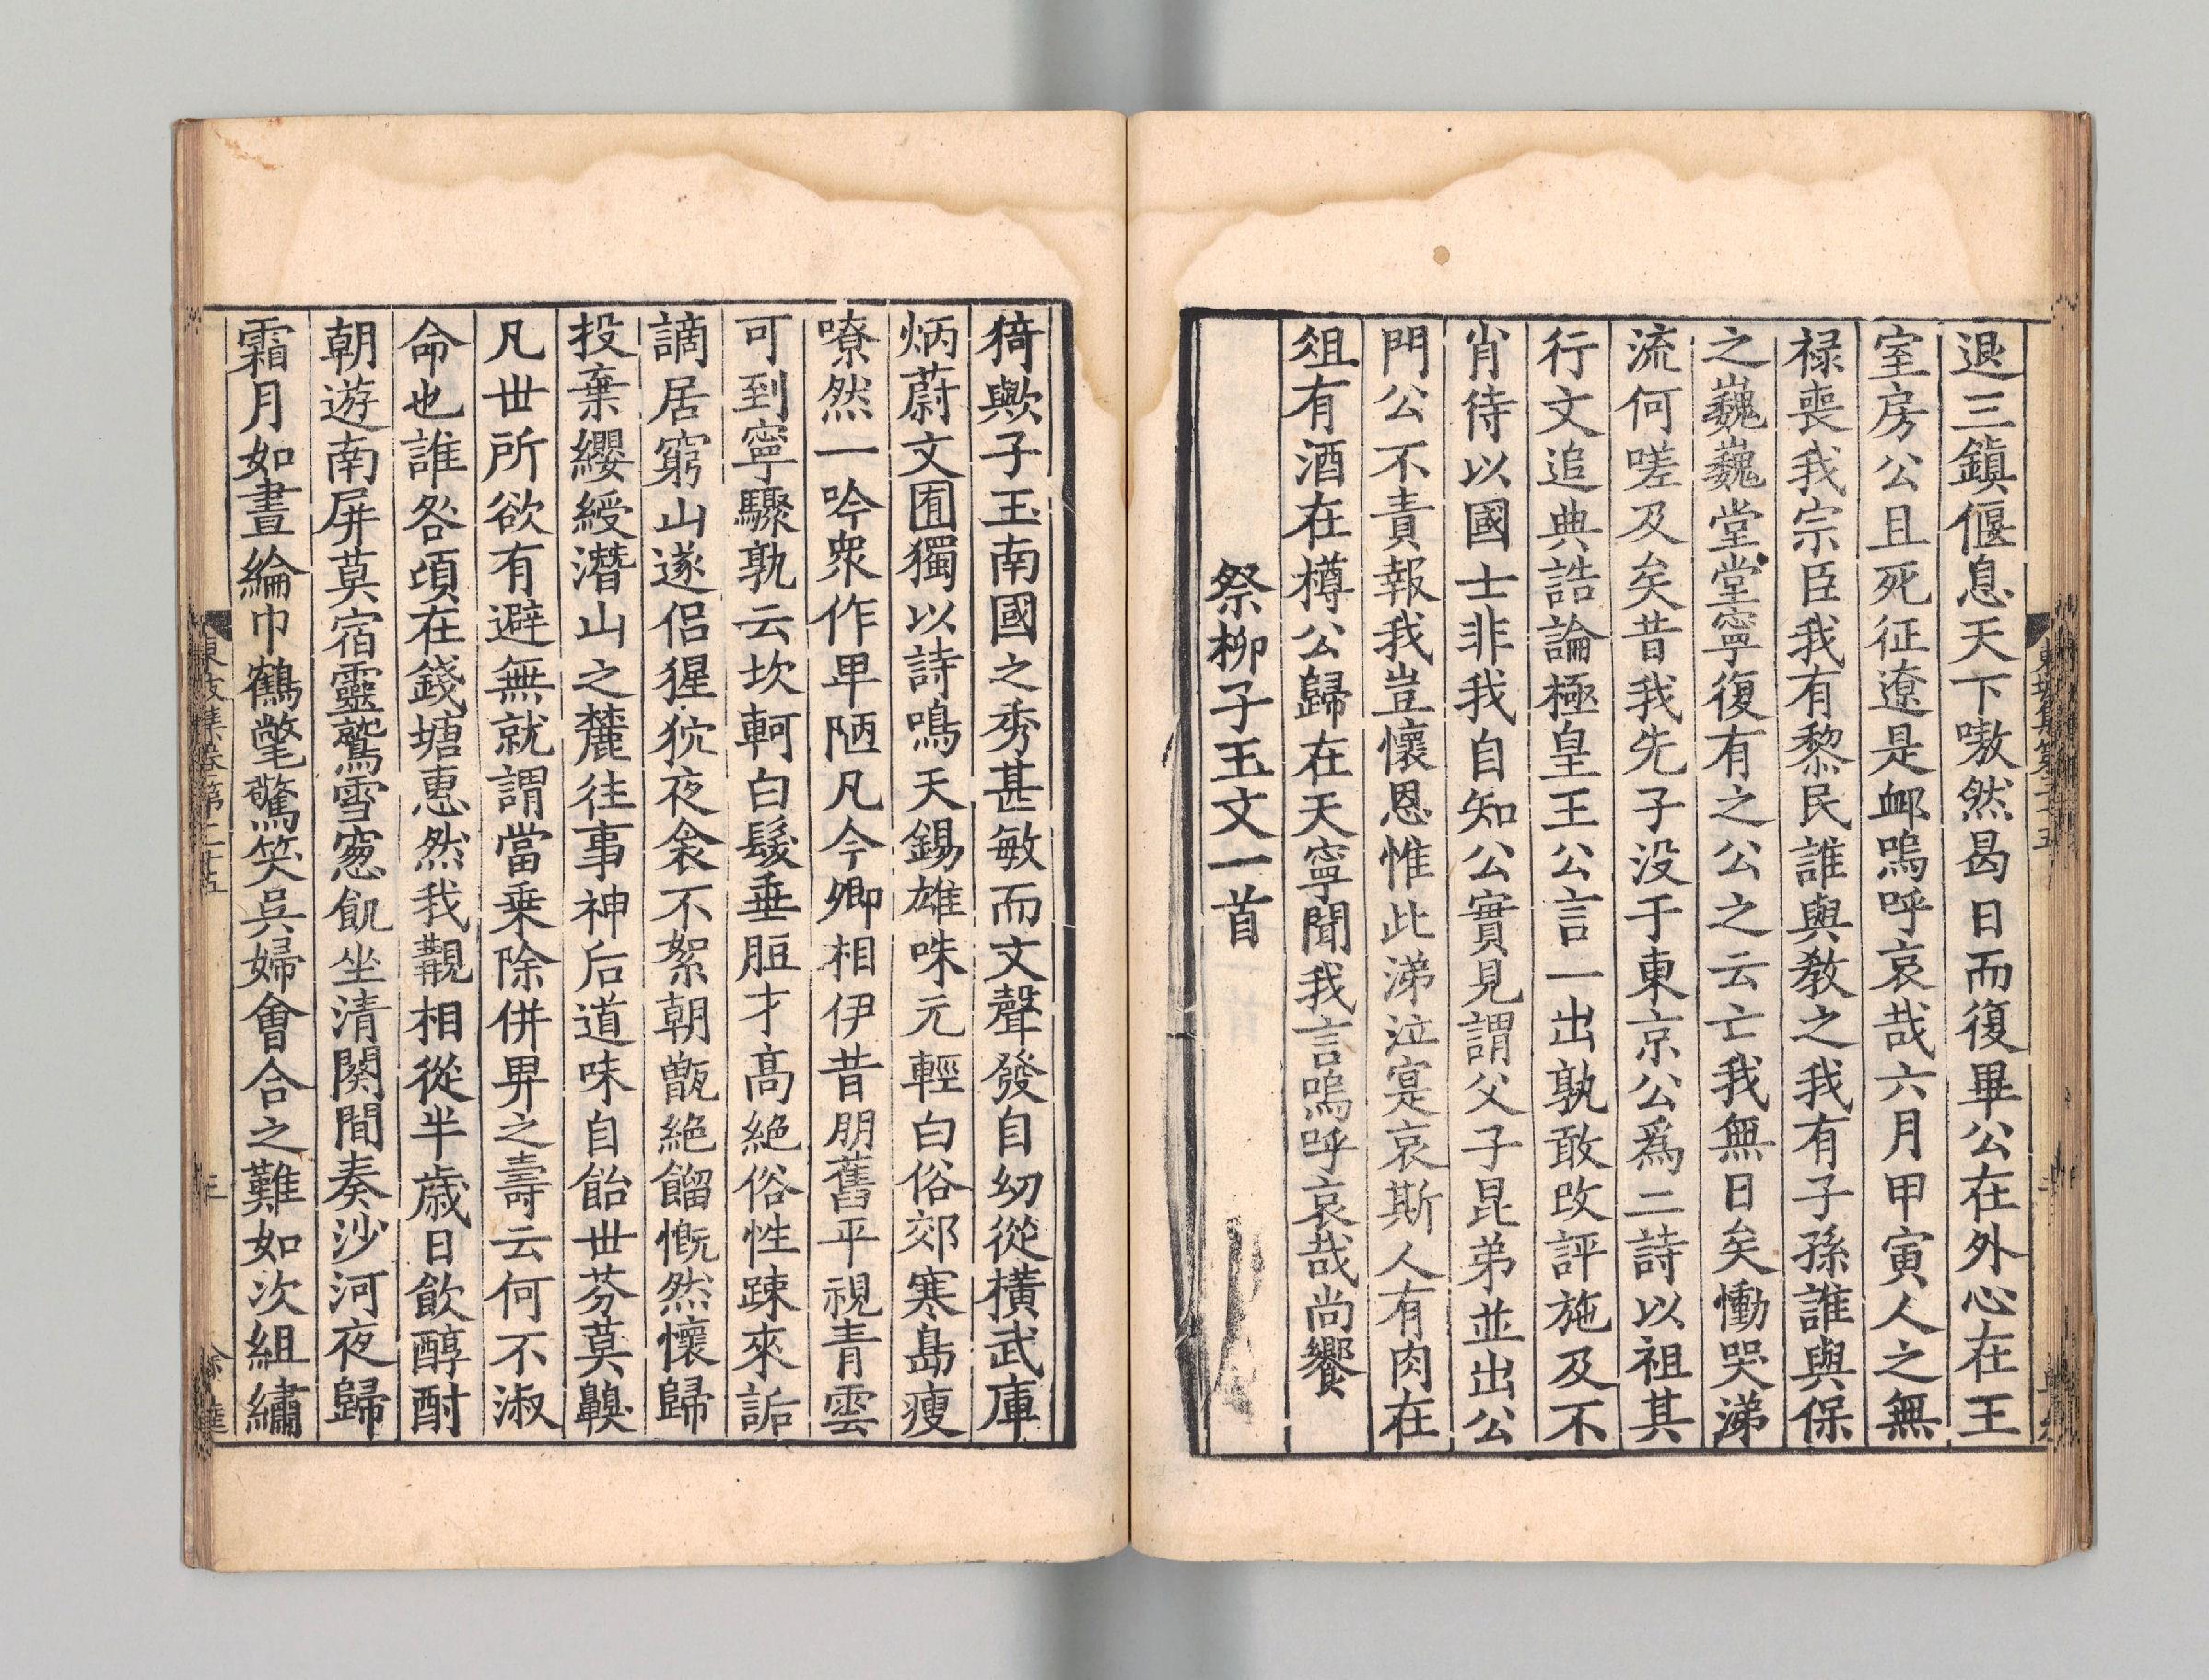 退三鎮偃息天下嗷然曷日而復畢公在外心在王
室房公且死征遼是䘏嗚呼哀哉六月甲寅人之無
禄喪我宗臣我有黎民誰與教之我有子孫誰與保
之巍巍堂堂寧復有之公之云亡我無日矣慟哭涕
流何嗟及矣昔我先子没于東京公爲二詩以祖其
行文追典誥論極皇王公言一出孰敢改評施及不
肖待以國士非我自知公實見謂父子昆弟並出公
門公不責報我豈懷恩惟此涕泣寔哀斯人有肉在
俎有酒在樽公歸在天寧聞我言嗚呼哀哉尚饗
祭柳子玉文一首
猗歟子玉南國之秀甚敏而文聲發自幼從横武庫
炳蔚文囿獨以詩鳴天錫雄咮元輕白俗郊寒島瘦
嘹然一吟衆作卑陋凡今卿相伊昔朋舊平視青雲
可到寧驟孰云坎軻白髮垂脰才髙絶俗性踈來詬
謫居窮山遂侣猩狖夜衾不絮朝甑絶餾慨然懷歸
投棄纓綬潛山之麓往事神后道味自飴世芬莫齅
凡世所欲有避無就謂當乗除併畀之壽云何不淑
命也誰咎頃在錢塘惠然我覯相從半歳日飲醇酎
朝遊南屏莫宿靈鷲雪窓飢坐清闋間奏沙河夜歸
霜月如晝綸巾鶴氅驚笑吳婦會合之難如次組繡
東坡集卷第二十五